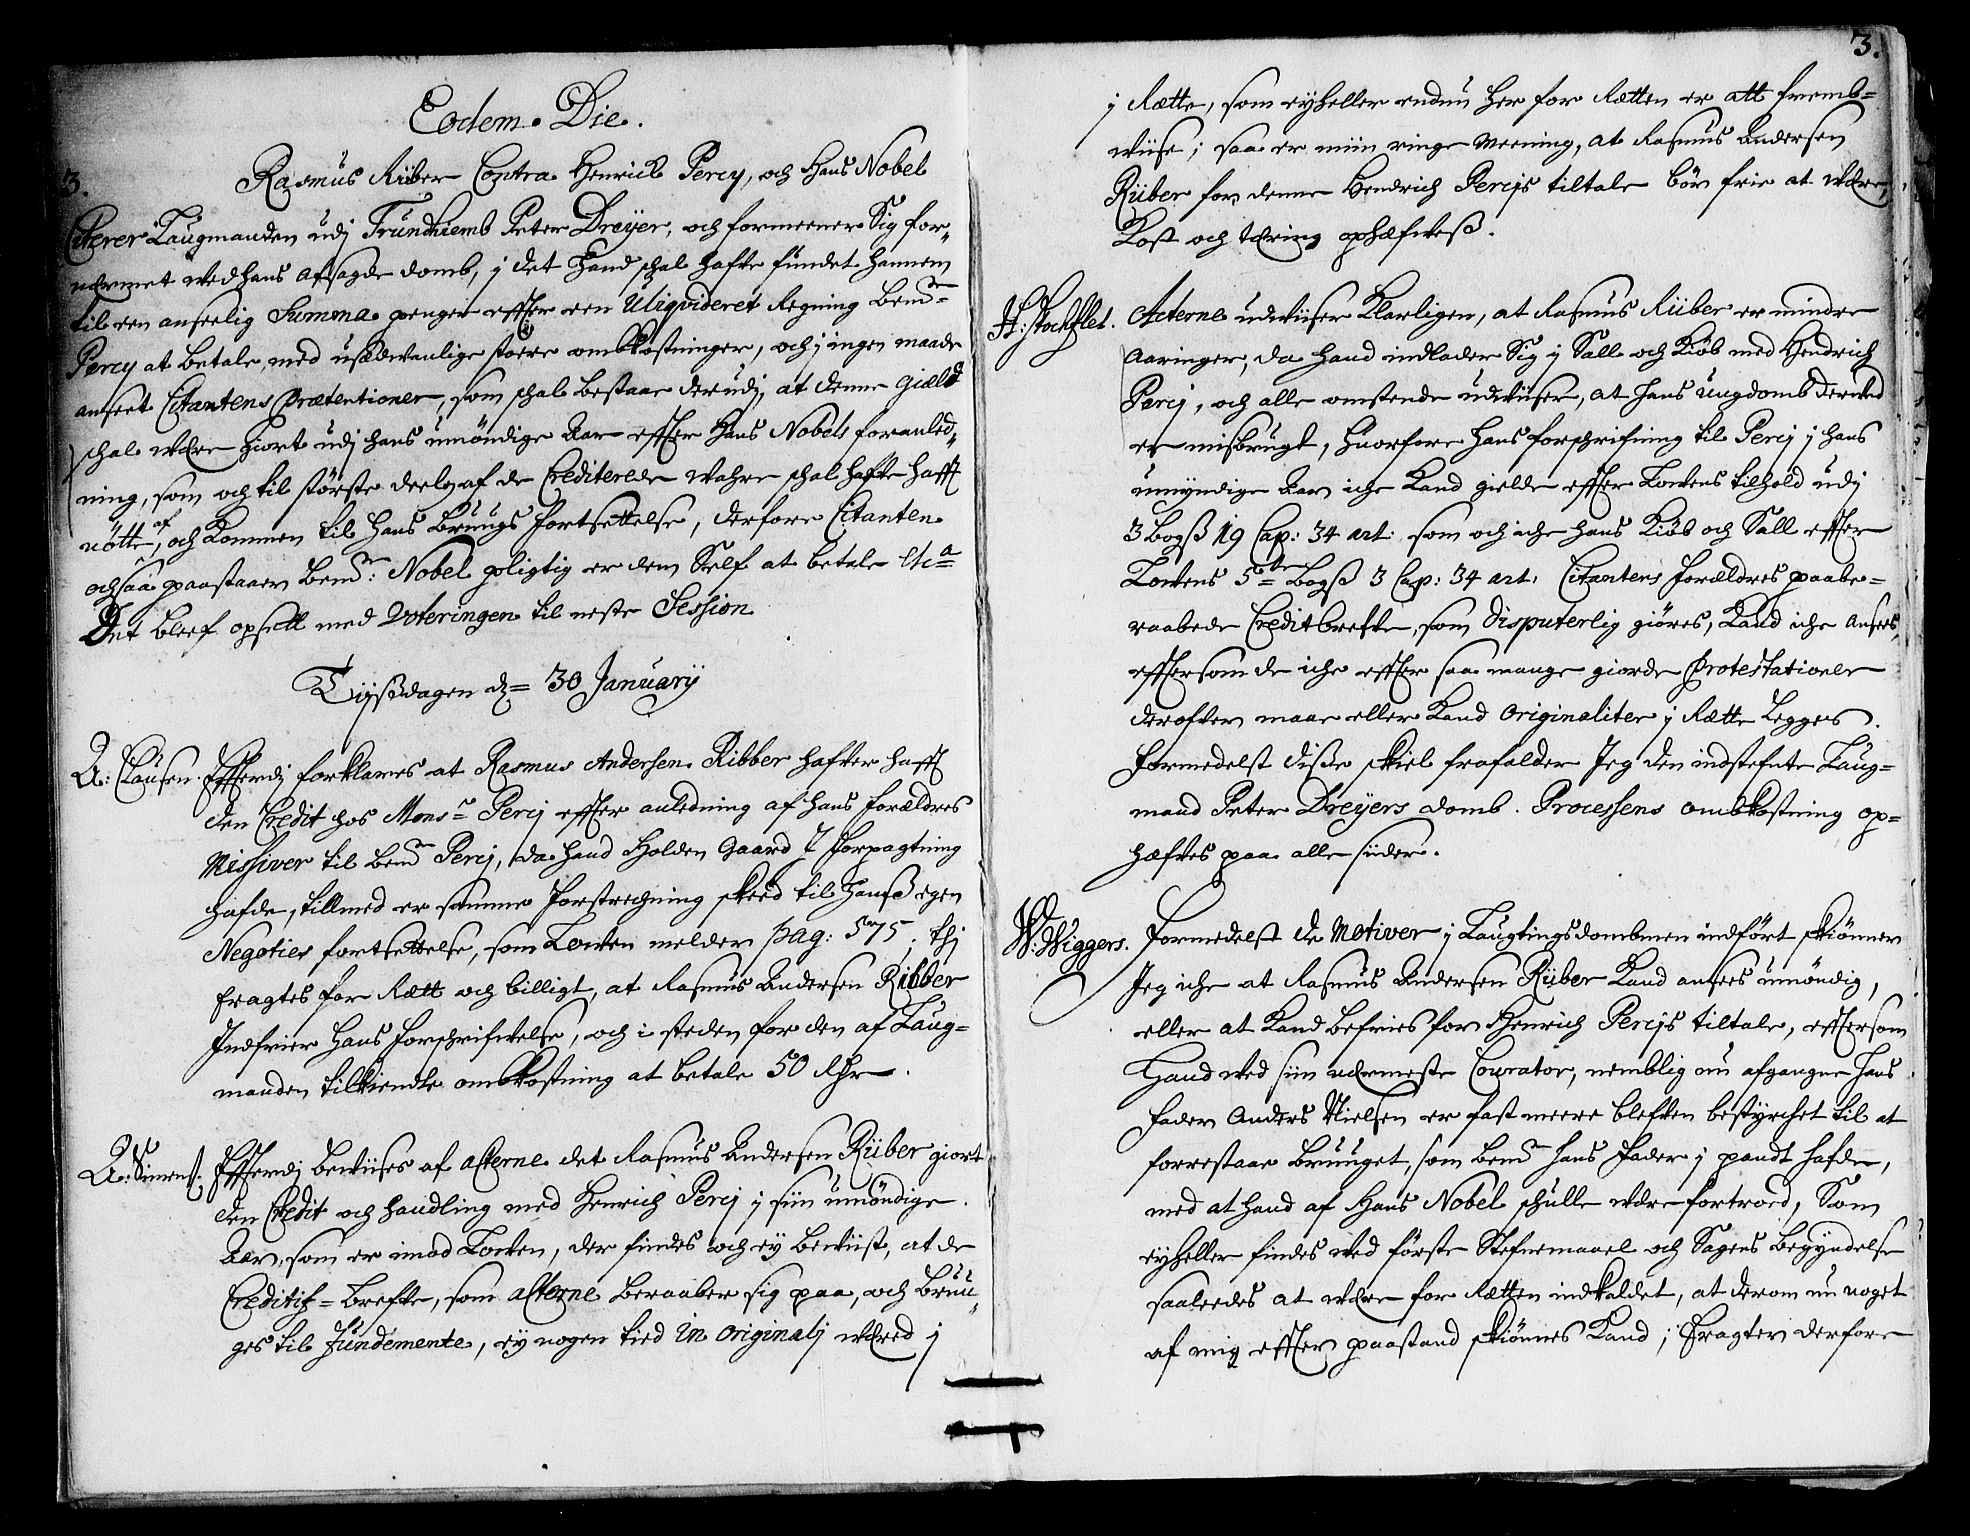 Eodem Die.
3.
Rasmus Riber Contra Henrich Percy, och Hans Nobel
Citerer Laugmanden udj Trundhiemb Peter Dreyer, och formeener Sig for„
nermet wed hans afsagde domb, j det Hand schal hafve fundet hannem
til een anseelig Summa penger effter een Uliqvideret Regning bemte
Percy at betale, med usædvanlige stoere ombkostninger, och j ingen maade
anseet Citantens Prætentioner, som schal bestaae derudj, at denne Giæld
schal være giort udj hans umöndige Aar effter Hans Nobels foranled„
ning, som och til störste deelen af de Crediterede wahre schal hafve hafft
nötte af, och kommen til hans Bruugs fortsettelse, derfore Citanten
ochsaa paastaaer bemte: Nobel pligtig er dem Self at betale etca
Det bleef opsett med Voteringen til neste Session
Tijssdagen d= 30 Januarij
A: Clausen. Efterdj forklares at Rasmus Andersen Ribber hafver hafft
den Credit hos Monsr Percj effter anledning af hans forældres
Missiver til bemte Percj, da hand Holden Gaard I forpagtning
hafde, tillmed er samme forstrechning skeed til hanss egen
Negoties fortsettelse, som Lowen melder pag: 575, thj
eragtes for Rætt och billigt, at Rasmus Andersen Ribber
Indfrier hans forschrifvelse, och i steden for den af Laug=
manden tilkiendte ombkostning at betale 50 Rdr.
A: Simens. Efterdj beviises af acterne det Rasmus Andersen Riiber giort
den Credit och handling med Henrich Percj j siin umöndige
Aar, som er imod Lowen, der findes och ey beviist, at de
Creditif=brefve, som acterne beraaber sig paa, och bruu„
ges til fundemente, ey nogen tied in originalj wæred j
3.
j Rætte, som eyheller endnu her for Retten er att fremb=
wiise; saa er miin ringe meening, at Rasmus Andersen
Riiber for denne Hendrich Percijs tiltale bör frie at være,
Kost och tæring ophæfvess.
H: Stochflet. Acterne udviiser klarligen, at Rasmus Riiber er mindre
aaringer, da hand indlader Sig j Sall och Kiöb med Hendrich
Percj, och alle omstende udviiser, at hans ungdomb derved
er misbrugt, huorfore hans forschrifning til Percj j hans
umyndige Aar iche kand gielde effter Lovens tilhold udj
3 Bogss 19 Cap: 34 art: som och iche hans Kiöb och Sall effter
Lovens 5te Bogss 3 Cap: 34 art: Citantens forældres paabe=
raabede Creditbrefve, som disputerlig giöres, kand iche ansees,
efftersom de iche effter saa mange giorde Protestationer
derofver maae eller kand originaliter j Rætte legges.
formedelst disse skiel frafalder Jeg den indstefnte Laug=
mand Peter Dreyers domb. Processens ombkostning op=
hæfves paa alle siider.
W: Wiggers. Formedelst de motiver j Laugtingsdombmen indfört skiönner
Jeg iche at Rasmus Andersen Riiber kand ansees umöndig,
eller at kand befries for Henrich Percijs tiltale, efftersom
Hand ved siin nermeste Courator, nemblig nu afgangne hans
fader Anders Nielsen er fast meere blefven bestyrchet til at
forrestaae Bruuget, som bemte hans fader j pandt hafde,
med at hand af Hans Nobel schulle være fortroed, Som
eyheller findes ved förste Stefnemaael och Sagens begyndelse
saaleedes at være for Retten indkaldet, at derom nu noget
af mig effter paastand skiönnes kand; Eragter derfore